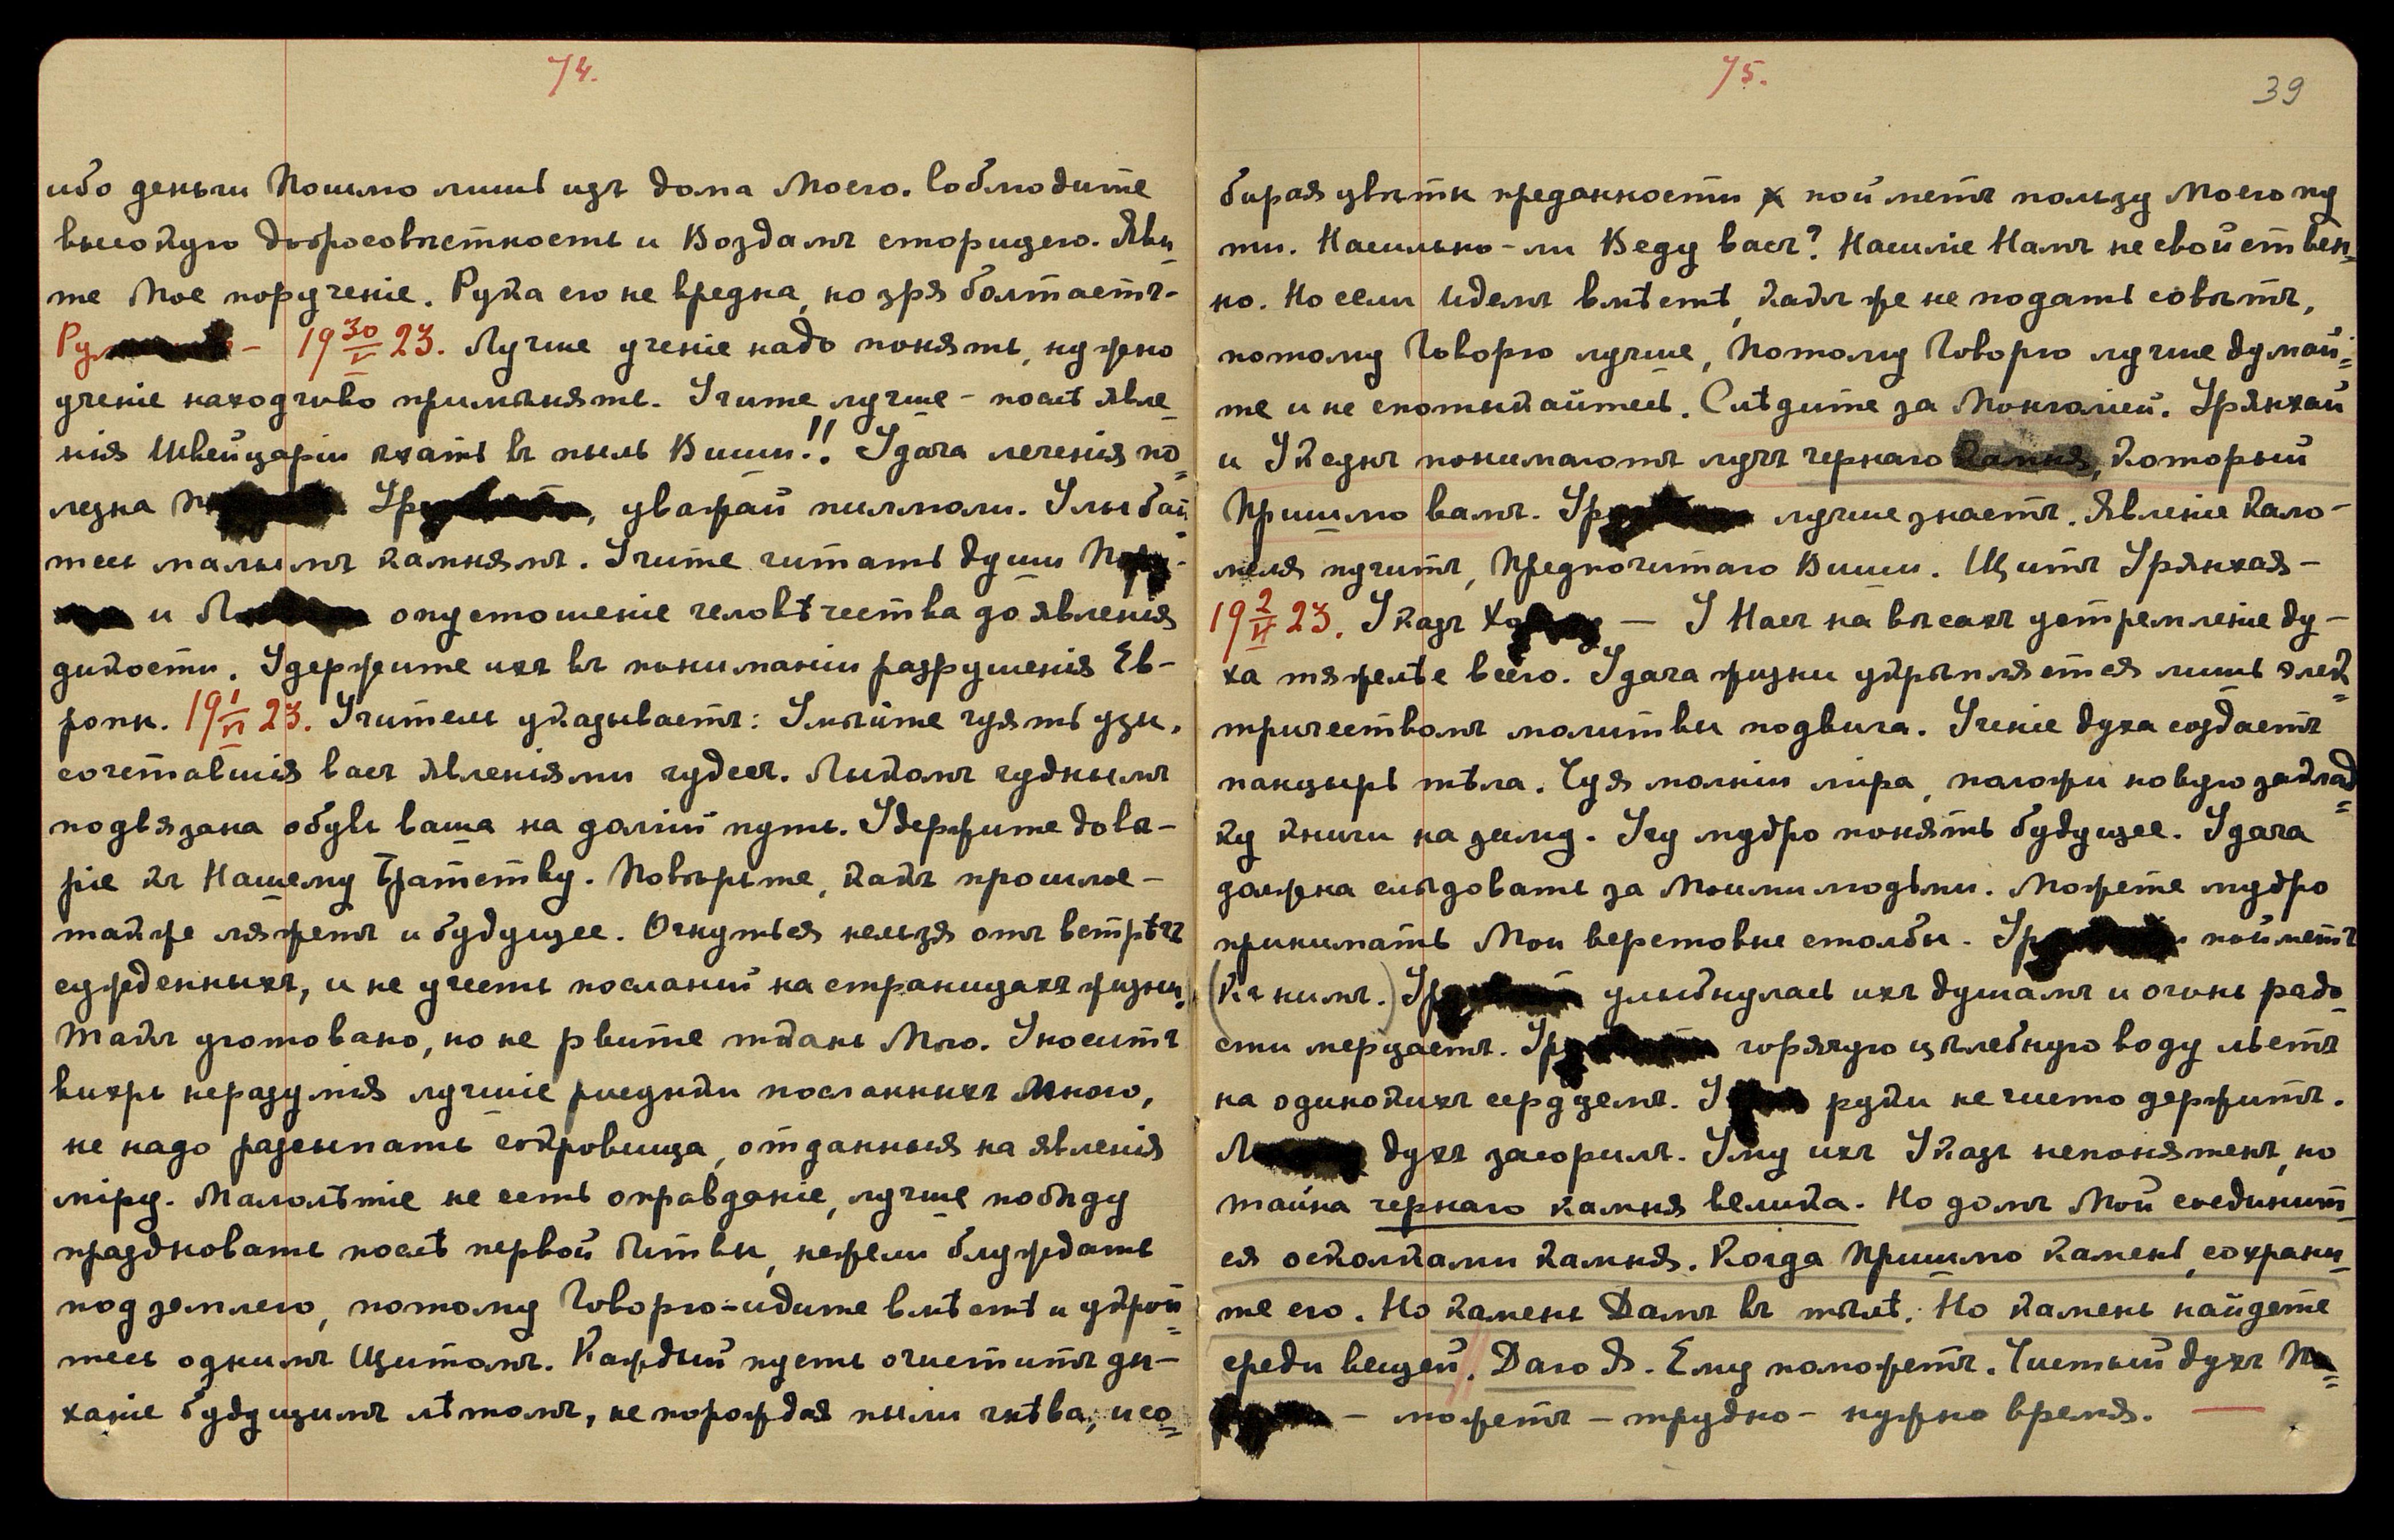 74.
ибо деньги Пошлю лишь изъ дома Моего. Соблюдите
высокую добросовѣстность и Воздамъ сторицею. Яви-
те Мое порученіе. Рука его не вредна, но зря болтаетъ-
19 30/V 23. Лучше ученіе надо понять, нужно
ученіе находчиво примѣнять. Учите лучше - послѣ явле-
нія Швейцаріи ѣхать въ пыль Виши!! Удача леченія по-
лезна, уважай пилюли. Улыбай-
тесь малымъ камнямъ. Учите читать души
и опустошеніе человѣчества до явленія
дикости. Удержите ихъ въ пониманіи разрушенія Ев-
ропы. 19 1/VI 23. Учитель указываетъ: Умѣйте чуять узы,
сочетавшія васъ явленіями чудесъ. Лыкомъ чуднымъ
подвязана обувь ваша на долгій путь. Удержите довѣ-
ріе къ Нашему Братству. Повѣрьте, какъ прошлое -
также ляжетъ и будущее. Очнуться нельзя отъ встрѣчъ
сужденныхъ, и не учесть посланій на страницахъ жизни.
Такъ уготовано, но не рвите ткань Мою. Уноситъ
вихрь неразумія лучшіе рисунки посланныхъ Мною,
не надо разсыпать сокровища, отданныя на явленія
міру. Малолѣтіе не есть оправданіе, лучше побѣду
праздновать послѣ первой битвы, нежели блуждать
под землею, потому Говорю - идите вмѣстѣ и укрой-
тесь однимъ Щитомъ. Каждый пусть очиститъ ды-
ханіе будущимъ лѣтомъ, не порождая пыли гнѣва, и со-
75.
39
бирая цвѣты преданности пойметъ пользу Моего пу
ти. Насильно-ли Веду васъ? Насиліе Намъ не свойствен-
но. Но если Идемъ вмѣстѣ, какъ же не подать совѣтъ,
потому Говорю лучше, Потому Говорю лучше думай-
те и не спотыкайтесь. Слѣдите за Монголіей. Урянхай
и понимаютъ лучъ чернаго камня, который
Пришлю вамъ. лучше знаетъ. Явленіе Кало-
меля пучитъ, Предпочитаю Виши. Щитъ Урянхая -
19 2/VI 23. Указъ — У Насъ на вѣсахъ устремленіе ду-
ха тяжелѣе всего. Удача жизни укрѣпляется лишь элек-
тричествомъ молитвы подвига. Ученіе духа создаетъ
панцырь тѣла. Чуя молніи міра, положи новую заклад-
ку книги на зиму. Учу мудро понять будущее. Удача
должна слѣдовать за Моими людьми. Можете мудро
принимать Мои верстовые столбы. пойметъ
(Къ нимъ.) улыбнулась ихъ душамъ и огонь радо-
сти мерцаетъ. горячую цѣлебную воду льетъ
на одинокихъ сердцемъ. руки не чисто держитъ.
духъ засорилъ. Уму ихъ Указъ непонятенъ, но
тайна чернаго камня велика. Но домъ Мой соединит-
ся осколками камня. Когда Пришлю камень, сохрани-
те его. Но камень Дамъ въ тѣлѣ. Но камень найдете
среди вещей. Даю Я. Ему поможетъ. Чистый духъ
- можетъ - трудно - нужно время. —